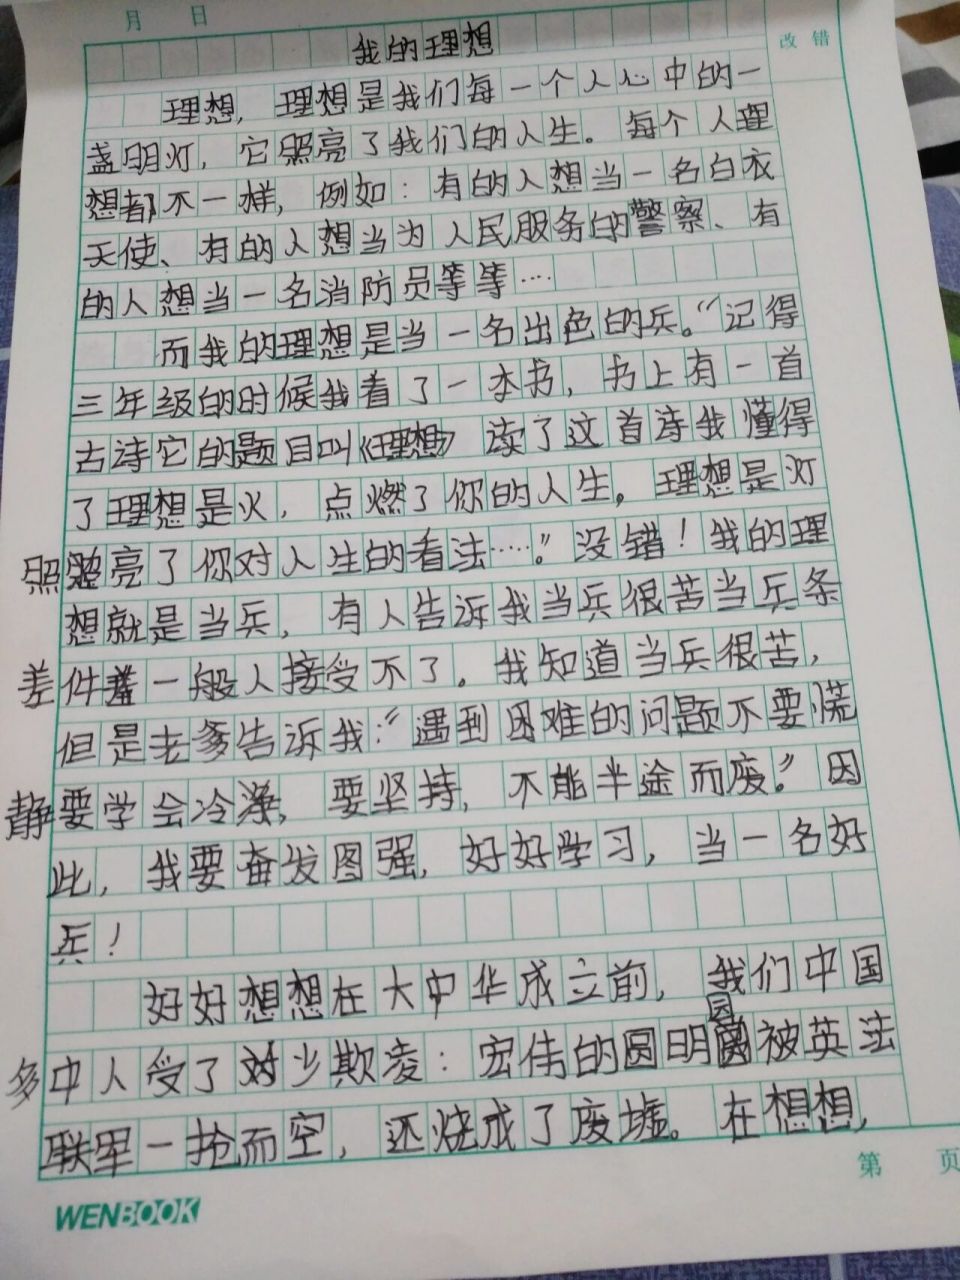 月 日
改 错
我的理想
理想，理想是我们每一个人心中的一
盏明灯，它照亮了我们的人生。每个人理
想都不一样，例如：有的人想当一名白衣
天使、有的人想当为人民服务的警察、有
的人想当一名消防员等等…
而我的理想是当一名出色的兵。“记得
三年级的时候我看了一本书，书上有一首
古诗它的题目叫《理想》读了这首诗我懂得
了理想是火，点燃了你的人生。理想是灯
照亮了你对人生的看法……。”没错！我的理
想就是当兵，有人告诉我当兵很苦当兵条
件差一般人接受不了。我知道当兵很苦，
但是老爹告诉我：“遇到困难的问题不要慌
要学会冷静，要坚持，不能半途而废。”因
此，我要奋发图强，好好学习，当一名好
兵！
好好想想在大中华成立前，我们中国
中人受了多少欺凌：宏伟的圆明园被英法
联军一抢而空，还烧成了废墟。在想想，
第 页
WENBOOK